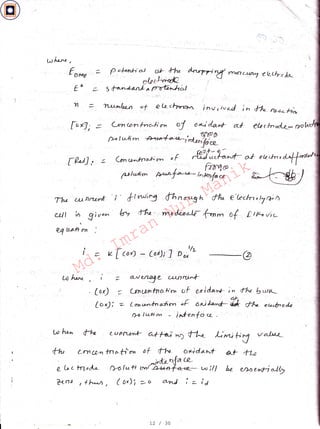 where,
E_DME = potential at the dropping mercury electrode
E° = standard potential
n = number of electrons involved in the reaction
[ox]i = Concentration of oxidant at electrode-solution
solution interface
[Red]i = Concentration of reductant at electrode
solution interface
The current i flowing through the electrolysis
cell is given by the form of Ilkovic
equation :
i = K [(ox) - (ox)i] D_ox^1/2 —— ②
where, i = average current
(ox) = Concentration of oxidant in the bulk
(ox)i = Concentration of oxidant at the electrode
solution - interface.
when the current attains the limiting value
the concentration of the oxidant at the
electrode solution interface will be essentially
zero, thus, (ox)i = 0 and i = id
Md. Imran Nur Manik
12 / 30